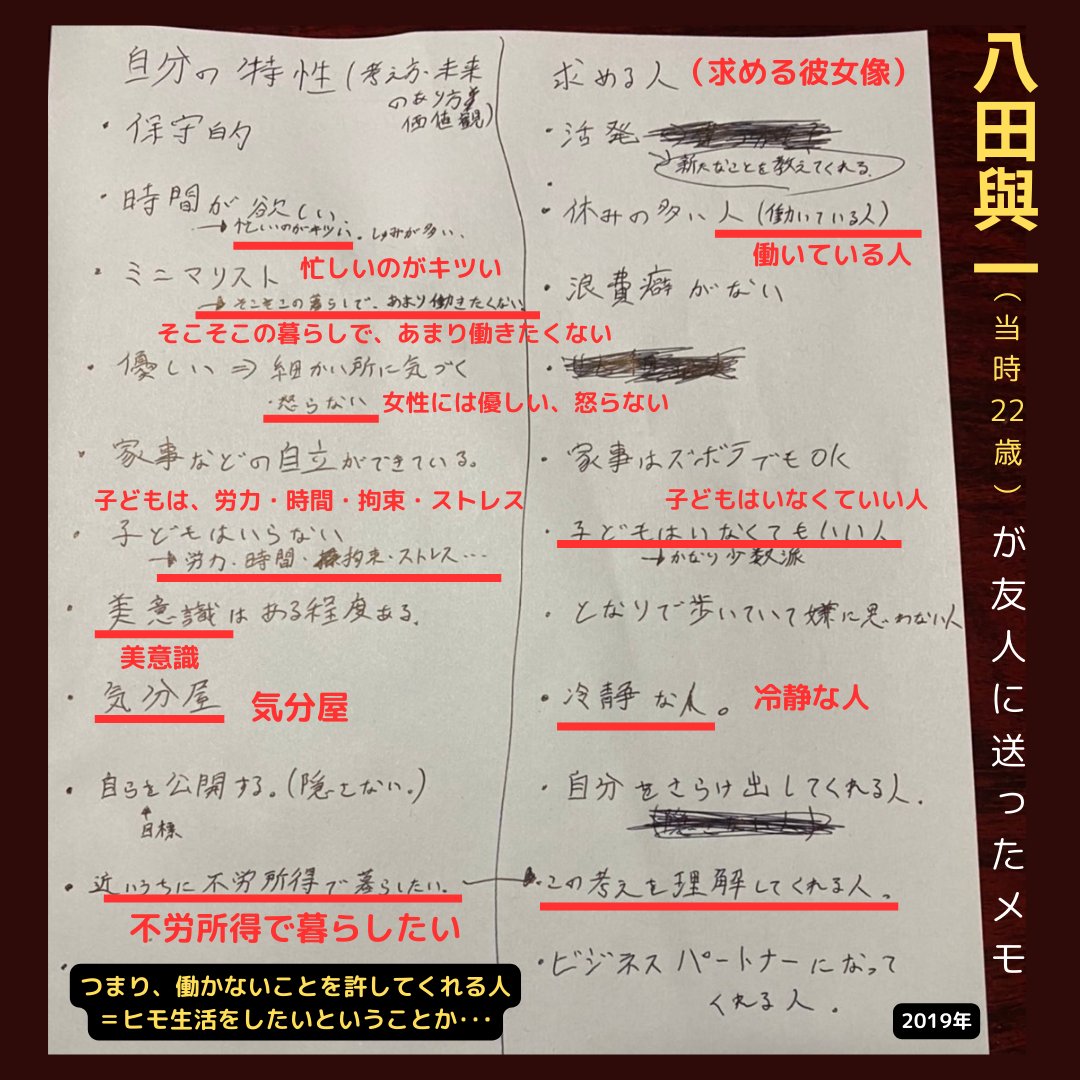 八田與一(当時22歳)が友人に送ったメモ
自分の特性(考え方・未来
のあり方
価値観)
・保守的
・時間が欲しい
→忙しいのがキツい。しゅみが多い、
忙しいのがキツい
・ミニマリスト
→そこそこの暮らしで、あまり働きたくない。
そこそこの暮らしで、あまり働きたくない
・優しい⇒細かい所に気づく
・怒らない
女性には優しい、怒らない
・家事などの自立ができている。
子どもは、労力・時間・拘束・ストレス
・子どもはいらない
→労力・時間・拘束・ストレス・・・
・美意識はある程度ある。
美意識
・気分屋
気分屋
・自らを公開する。(隠さない。)
↑
目標
・近いうちに不労所得で暮らしたい。
不労所得で暮らしたい
つまり、働かないことを許してくれる人
=ヒモ生活をしたいということか・・・
求める人
(求める彼女像)
・活発
新たなことを教えてくれる。
・休みの多い人(働いている人)
働いている人
・浪費癖がない
・家事はズボラでもOK
子どもはいなくていい人
・子どもはいなくてもいい人
→かなり少数派
・となりで歩いていて嫌に思わない人
・冷静な人。
冷静な人
・自分をさらけ出してくれる人.
・この考えを理解してくれる人。
・ビジネスパートナーになって
くれる人.
2019年